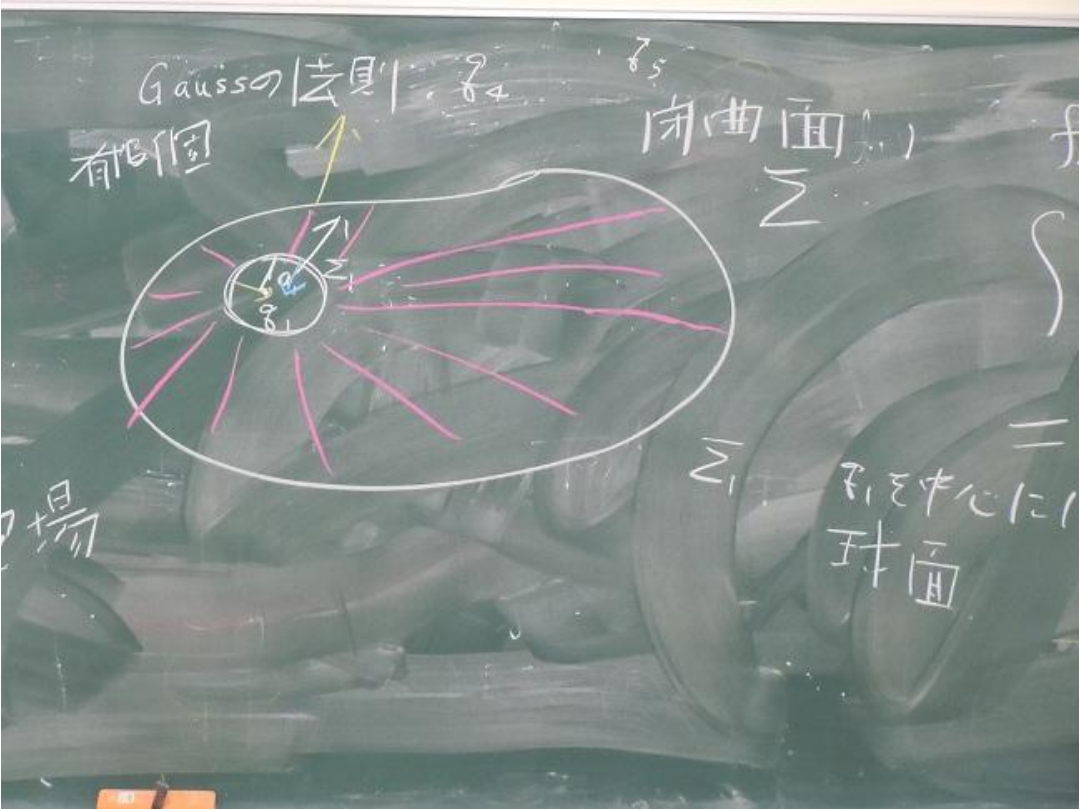 Gaussの法則
q4
q5
有限個
閉曲面
Σ
Σ1
q1
Σ1
q1を中心に
球面
場
∫
=